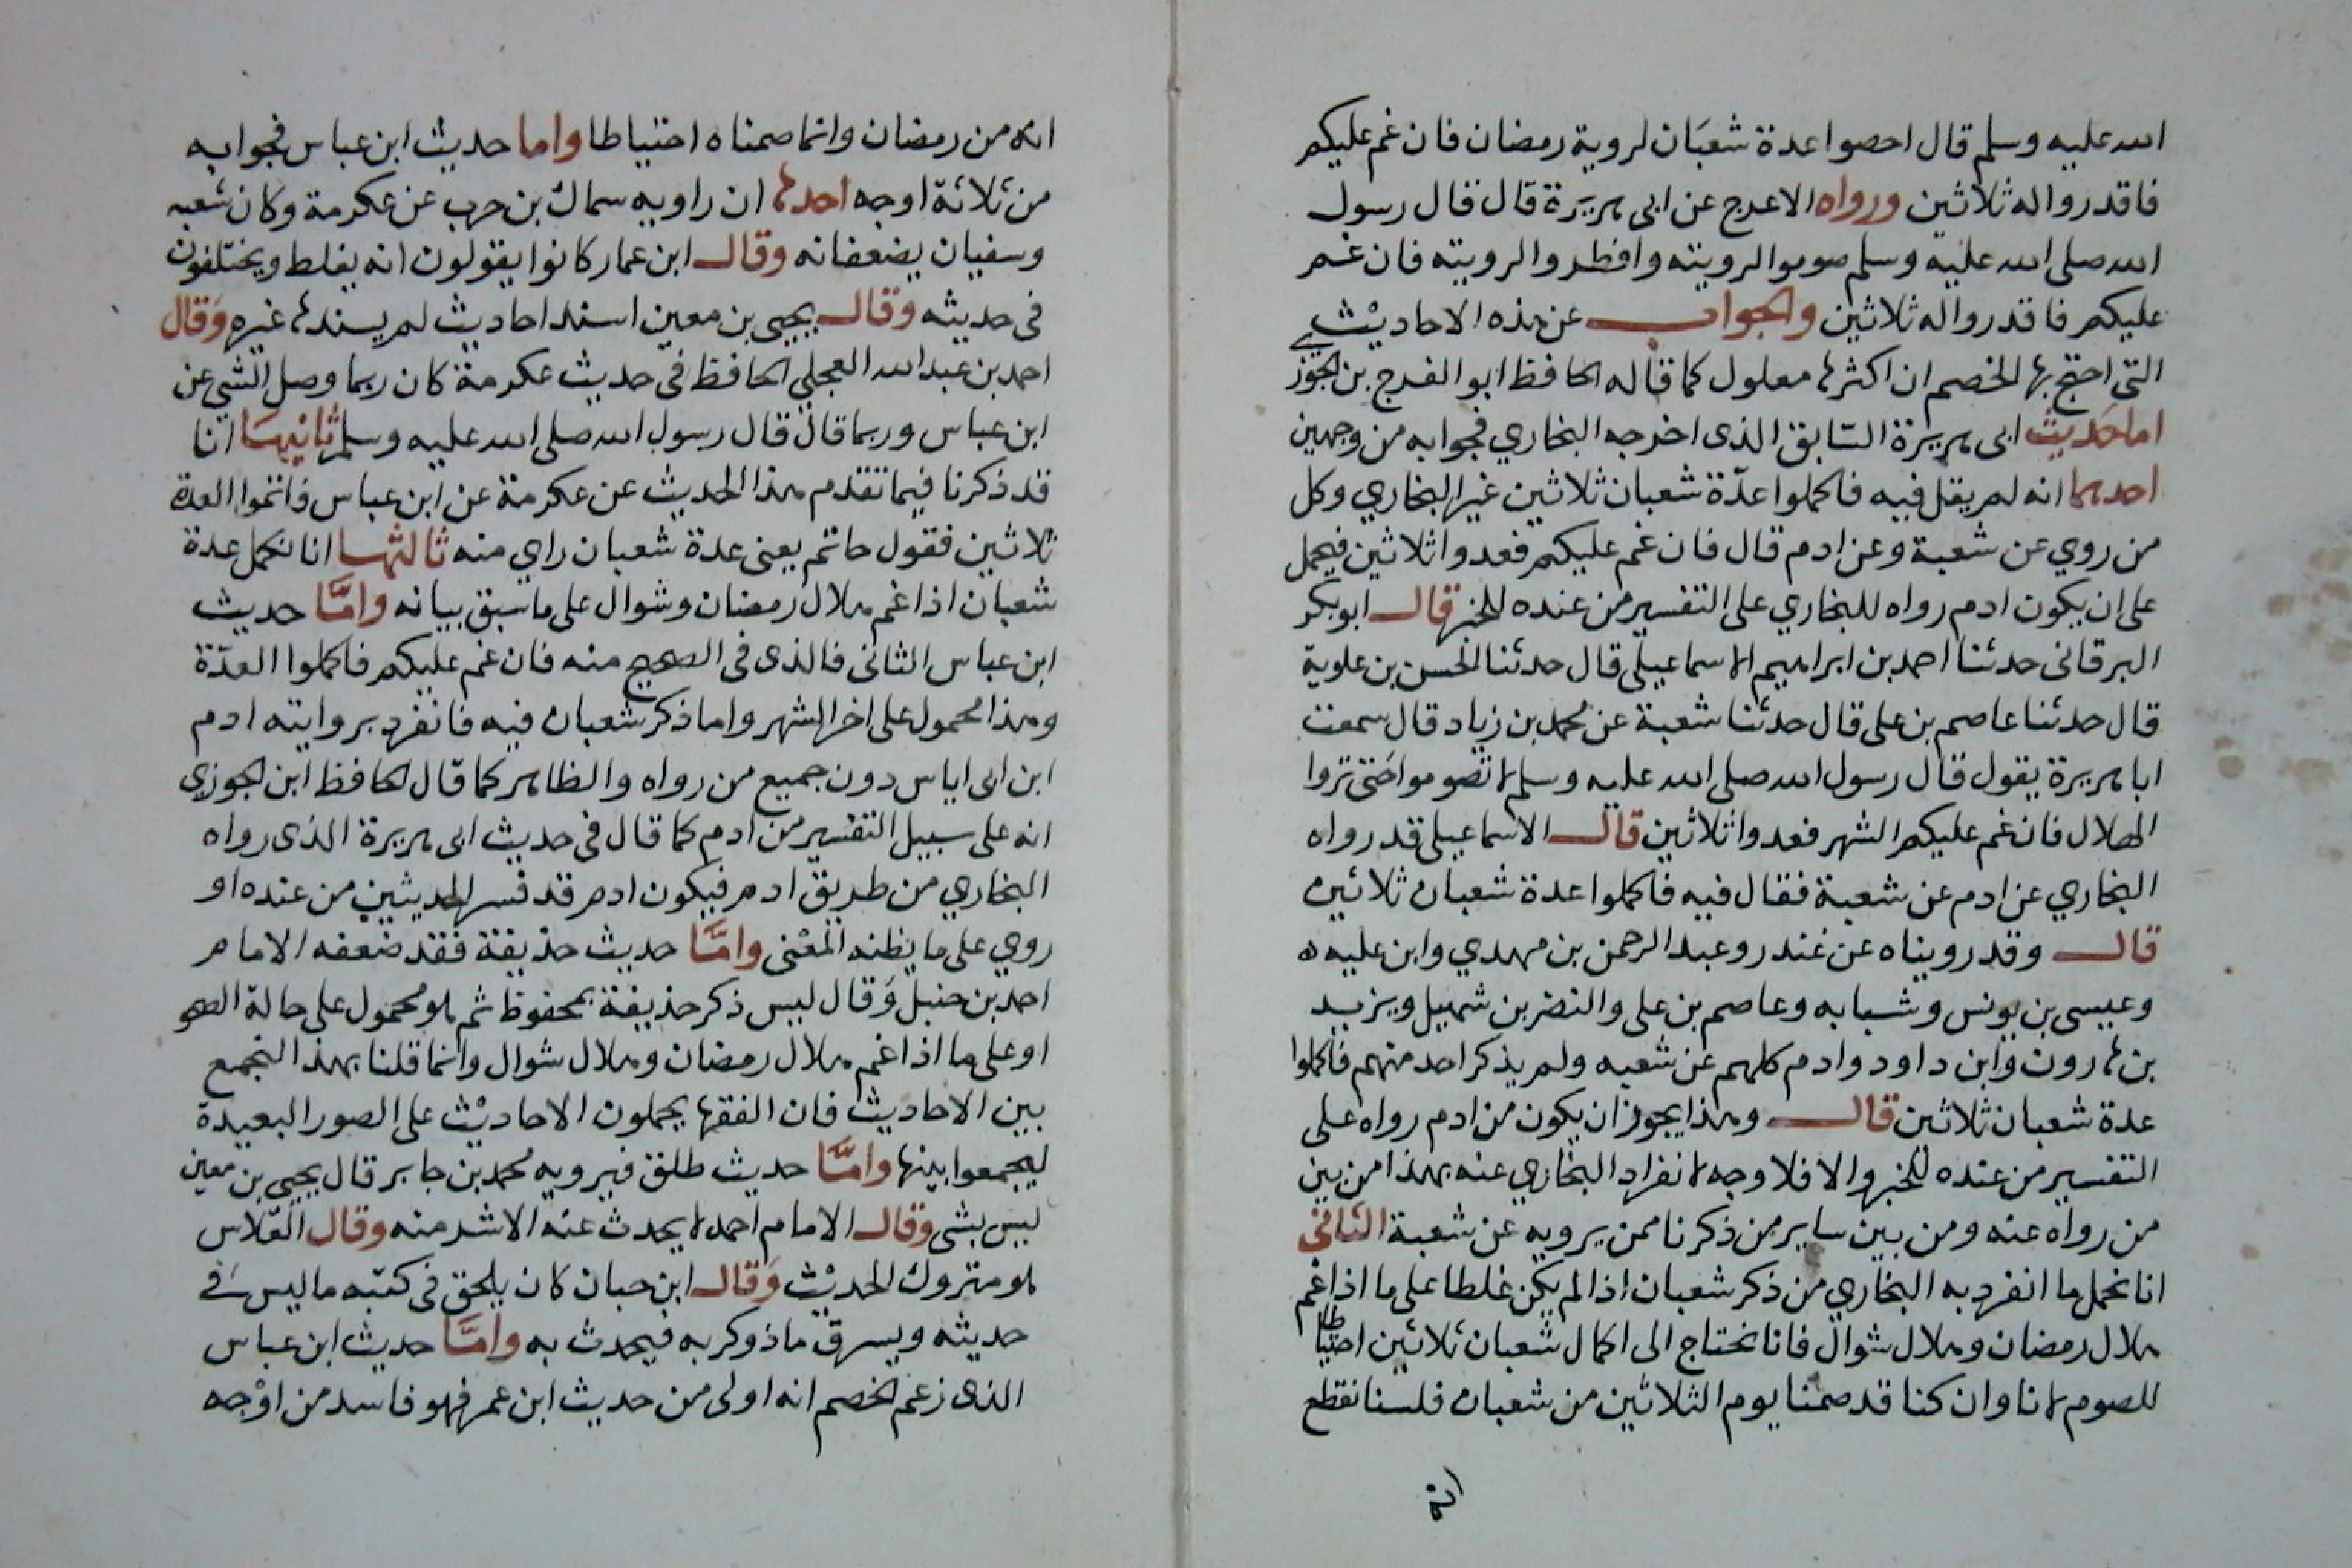 الله عليه وسلم قال احصوا عدة شعبان لروية رمضان فان غم عليكم
فاقدروا له ثلاثين ورواه الاعرج عن ابى هريرة قال قال رسول
الله صلى الله عليه وسلم صوموا لرويته وافطروا لرويته فان غم
عليكم فاقدروا له ثلاثين والجواب عن هذه الاحاديث
التى احتج بها الخصم ان اكثرها معلول كما قاله الحافظ ابو الفرج بن الجوزي
اما حديث ابى هريرة السابق الذى اخرجه البخاري فجوابه من وجهين
احدهما انه لم يقل فيه فاكملوا عدّة شعبان ثلاثين غير البخاري وكل
من روي عن شعبة وعن ادم قال فان غم عليكم فعدوا ثلاثين فيحمل
على ان يكون ادم رواه للبخاري على التفسير من عنده للخبر قال ابو بكر
البرقانى حدثنا احمد بن ابراهيم الاسماعيلى قال حدثنا الحسن بن علوية
قال حدثنا عاصم بن على قال حدثنا شعبة عن محمد بن زياد قال سمعت
ابا هريرة يقول قال رسول الله صلى الله عليه وسلم لا تصوموا حتى تروا
الهلال فان غم عليكم الشهر فعدوا ثلاثين قال الاسماعيلى قد رواه
البخاري عن ادم عن شعبة فقال فيه فاكملوا عدة شعبان ثلاثين
قال وقد رويناه عن غندر وعبد الرحمن بن مهدي وابن عليه
وعيسى بن يونس وشبابه وعاصم بن على والنضر بن شميل ويزيد
بن هارون وابن داود وادم كلهم عن شعبه ولم يذكر احد منهم فاكملوا
عدة شعبان ثلاثين قال وهذا يجوز ان يكون من ادم رواه على
التفسير من عنده للخبر والا فلا وجه لانفراد البخاري عنه بهذا من بين
من رواه عنه ومن بين ساير من ذكرنا ممن يرويه عن شعبة الثانى
انا نحمل ما انفرد به البخاري من ذكر شعبان اذا لم يكن غلطا على ما اذا غم
هلال رمضان وهلال شوال فانا نحتاج الى اكمال شعبان ثلاثين احتياطا
للصوم لانا وان كنا قد صمنا يوم الثلاثين من شعبان فلسنا نقطع
انه
انه من رمضان وانما صمناه احتياطا واما حديث ابن عباس فجوابه
من ثلاثة اوجه احدها ان راويه سماك بن حرب عن عكرمة وكان شعبه
وسفيان يضعفانه وقال ابن عمار كانوا يقولون انه يغلط ويختلفون
فى حديثه وقال يحيى بن معين اسند احاديث لم يسندها غيره وقال
احمد بن عبد الله العجلي الحافظ فى حديث عكرمة كان ربما وصل الشي عن
ابن عباس وربما قال قال رسول الله صلى الله عليه وسلم ثانيها انا
قد ذكرنا فيما تقدم هذا الحديث عن عكرمة عن ابن عباس فاتموا العدة
ثلاثين فقول حاتم يعنى عدة شعبان راي منه ثالثها انا نكمل عدة
شعبان اذا غم هلال رمضان وشوال على ما سبق بيانه وامّا حديث
ابن عباس الثانى فالذى فى الصحيح منه فان غم عليكم فاكملوا العدّة
وهذا محمول على اخر الشهر واما ذكر شعبان فيه فانفرد بروايته ادم
ابن ابى اياس دون جميع من رواه والظاهر كما قال الحافظ ابن الجوزي
انه على سبيل التفسير من ادم كما قال فى حديث ابى هريرة الذى رواه
البخاري من طريق ادم فيكون ادم قد فسر الحديثين من عنده او
روي على ما يظنه المعنى وامّا حديث حذيفة فقد ضعفه الامام
احمد بن حنبل وقال ليس ذكر حذيفة بمحفوظ ثم هو محمول على حالة الصحو
او على ما اذا غم هلال رمضان وهلال شوال وانما قلنا بهذا الجمع
بين الاحاديث فان الفقها يحملون الاحاديث على الصور البعيدة
ليجمعوا بينها وامّا حديث طلق فيرويه محمد بن جابر قال يحيى بن معين
ليس بشى وقال الامام احمد لا يحدث عنه الا شر منه وقال الفلاس
هو متروك الحديث وقال ابن حبان كان يلحق فى كتبه ما ليس فى
حديثه ويسرق ما ذوكر به فيحدث به وامّا حديث ابن عباس
الذى زعم الخصم انه اولى من حديث ابن عمر فهو فاسد من اوجه